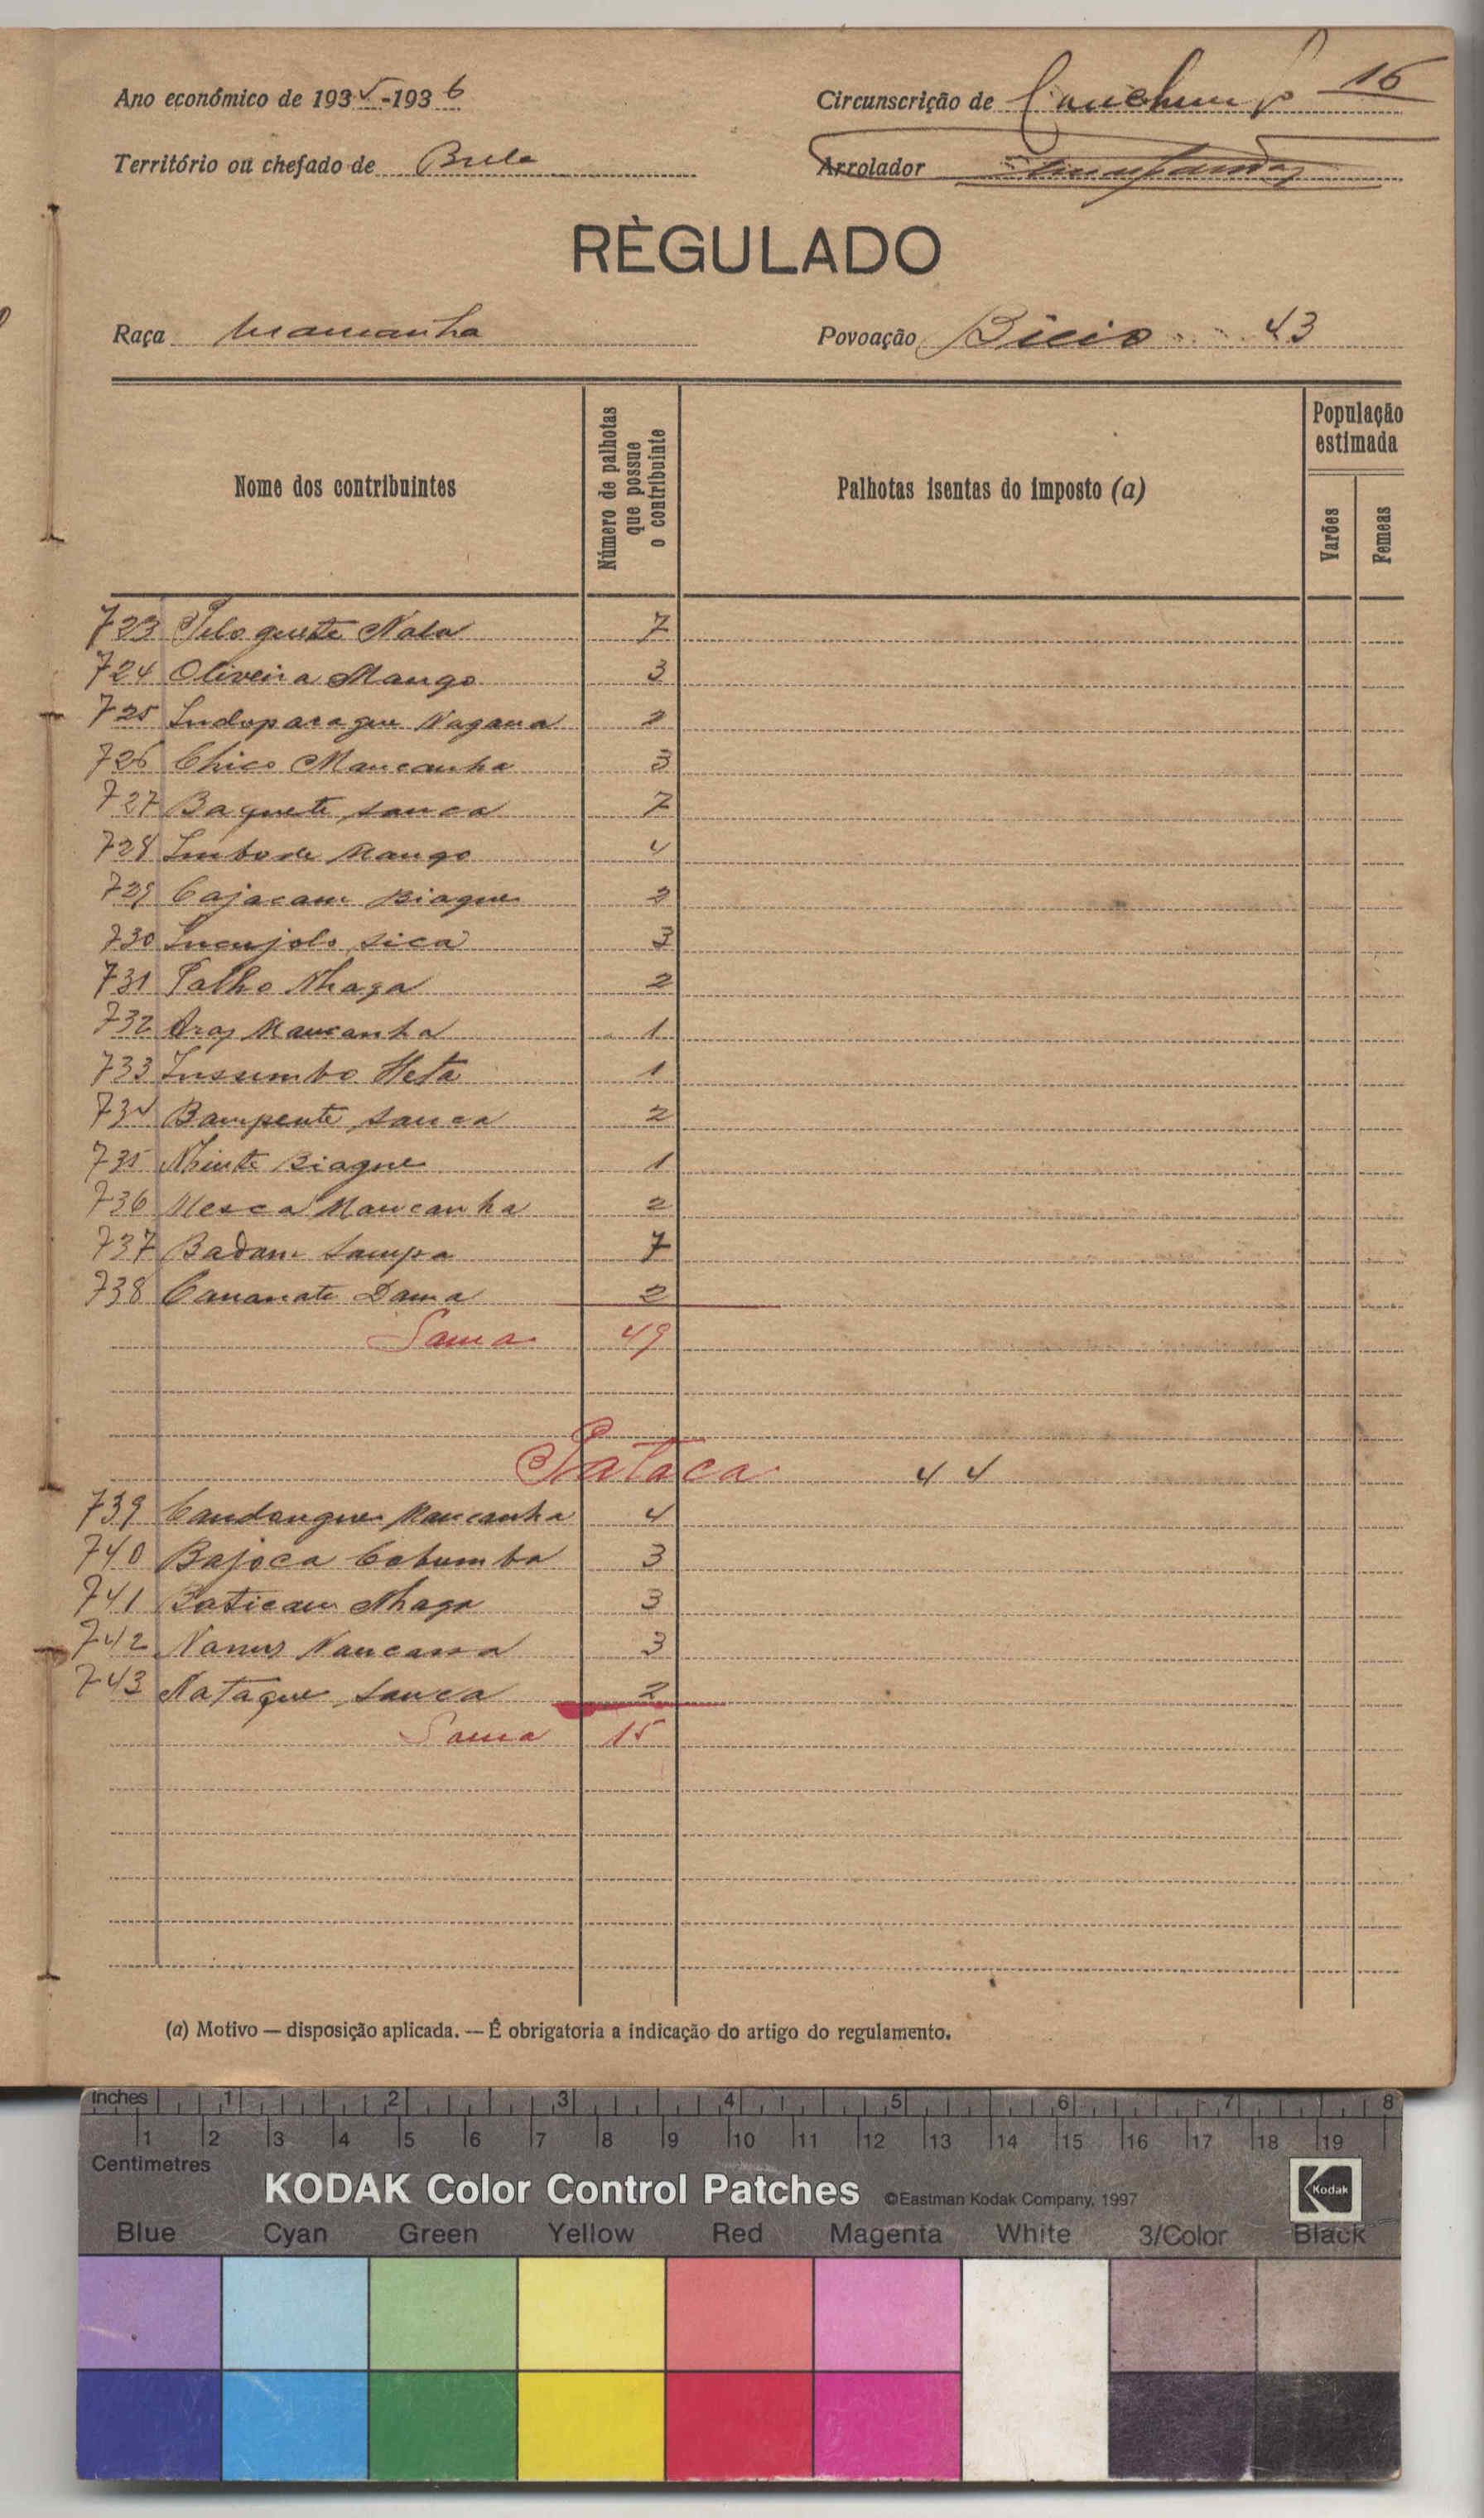 16
Ano económico de 1935-1936
Circunscrição de Canchungo
Território ou chefado de Bula
Arrolador
RÈGULADO
Raça Mancanha
Povoação Bicio 43
Nome dos contribuintes
Número de palhotas que possue o contribuinte
Palhotas isentas do imposto (a)
População estimada
Varões
Femeas
723 Nala 7
724 Oliveira Mango 3
725 2
726 Chico Mancanha 3
727 Baquete Sanca 7
728 Mango 4
729 Cajacam Biague 2
730 Sica 3
731 Nhaga 2
732 Mancanha 1
733 1
734 Bampente Sanca 2
735 Biague 1
736 Mancanha 2
737 Badam Sampa 7
738 Dama 2
Soma 49
Pataca 44
739 Candangue Mancanha 4
740 Bajoca 3
741 Baticam Nhaga 3
742 3
743 Nataque Sanca 2
Soma 15
(a) Motivo — disposição aplicada. — É obrigatoria a indicação do artigo do regulamento.
Inches 1 2 3 4 5 6 7 8
1 2 3 4 5 6 7 8 9 10 11 12 13 14 15 16 17 18 19
Centimetres
KODAK Color Control Patches ©Eastman Kodak Company, 1997 Kodak
Blue Cyan Green Yellow Red Magenta White 3/Color Black